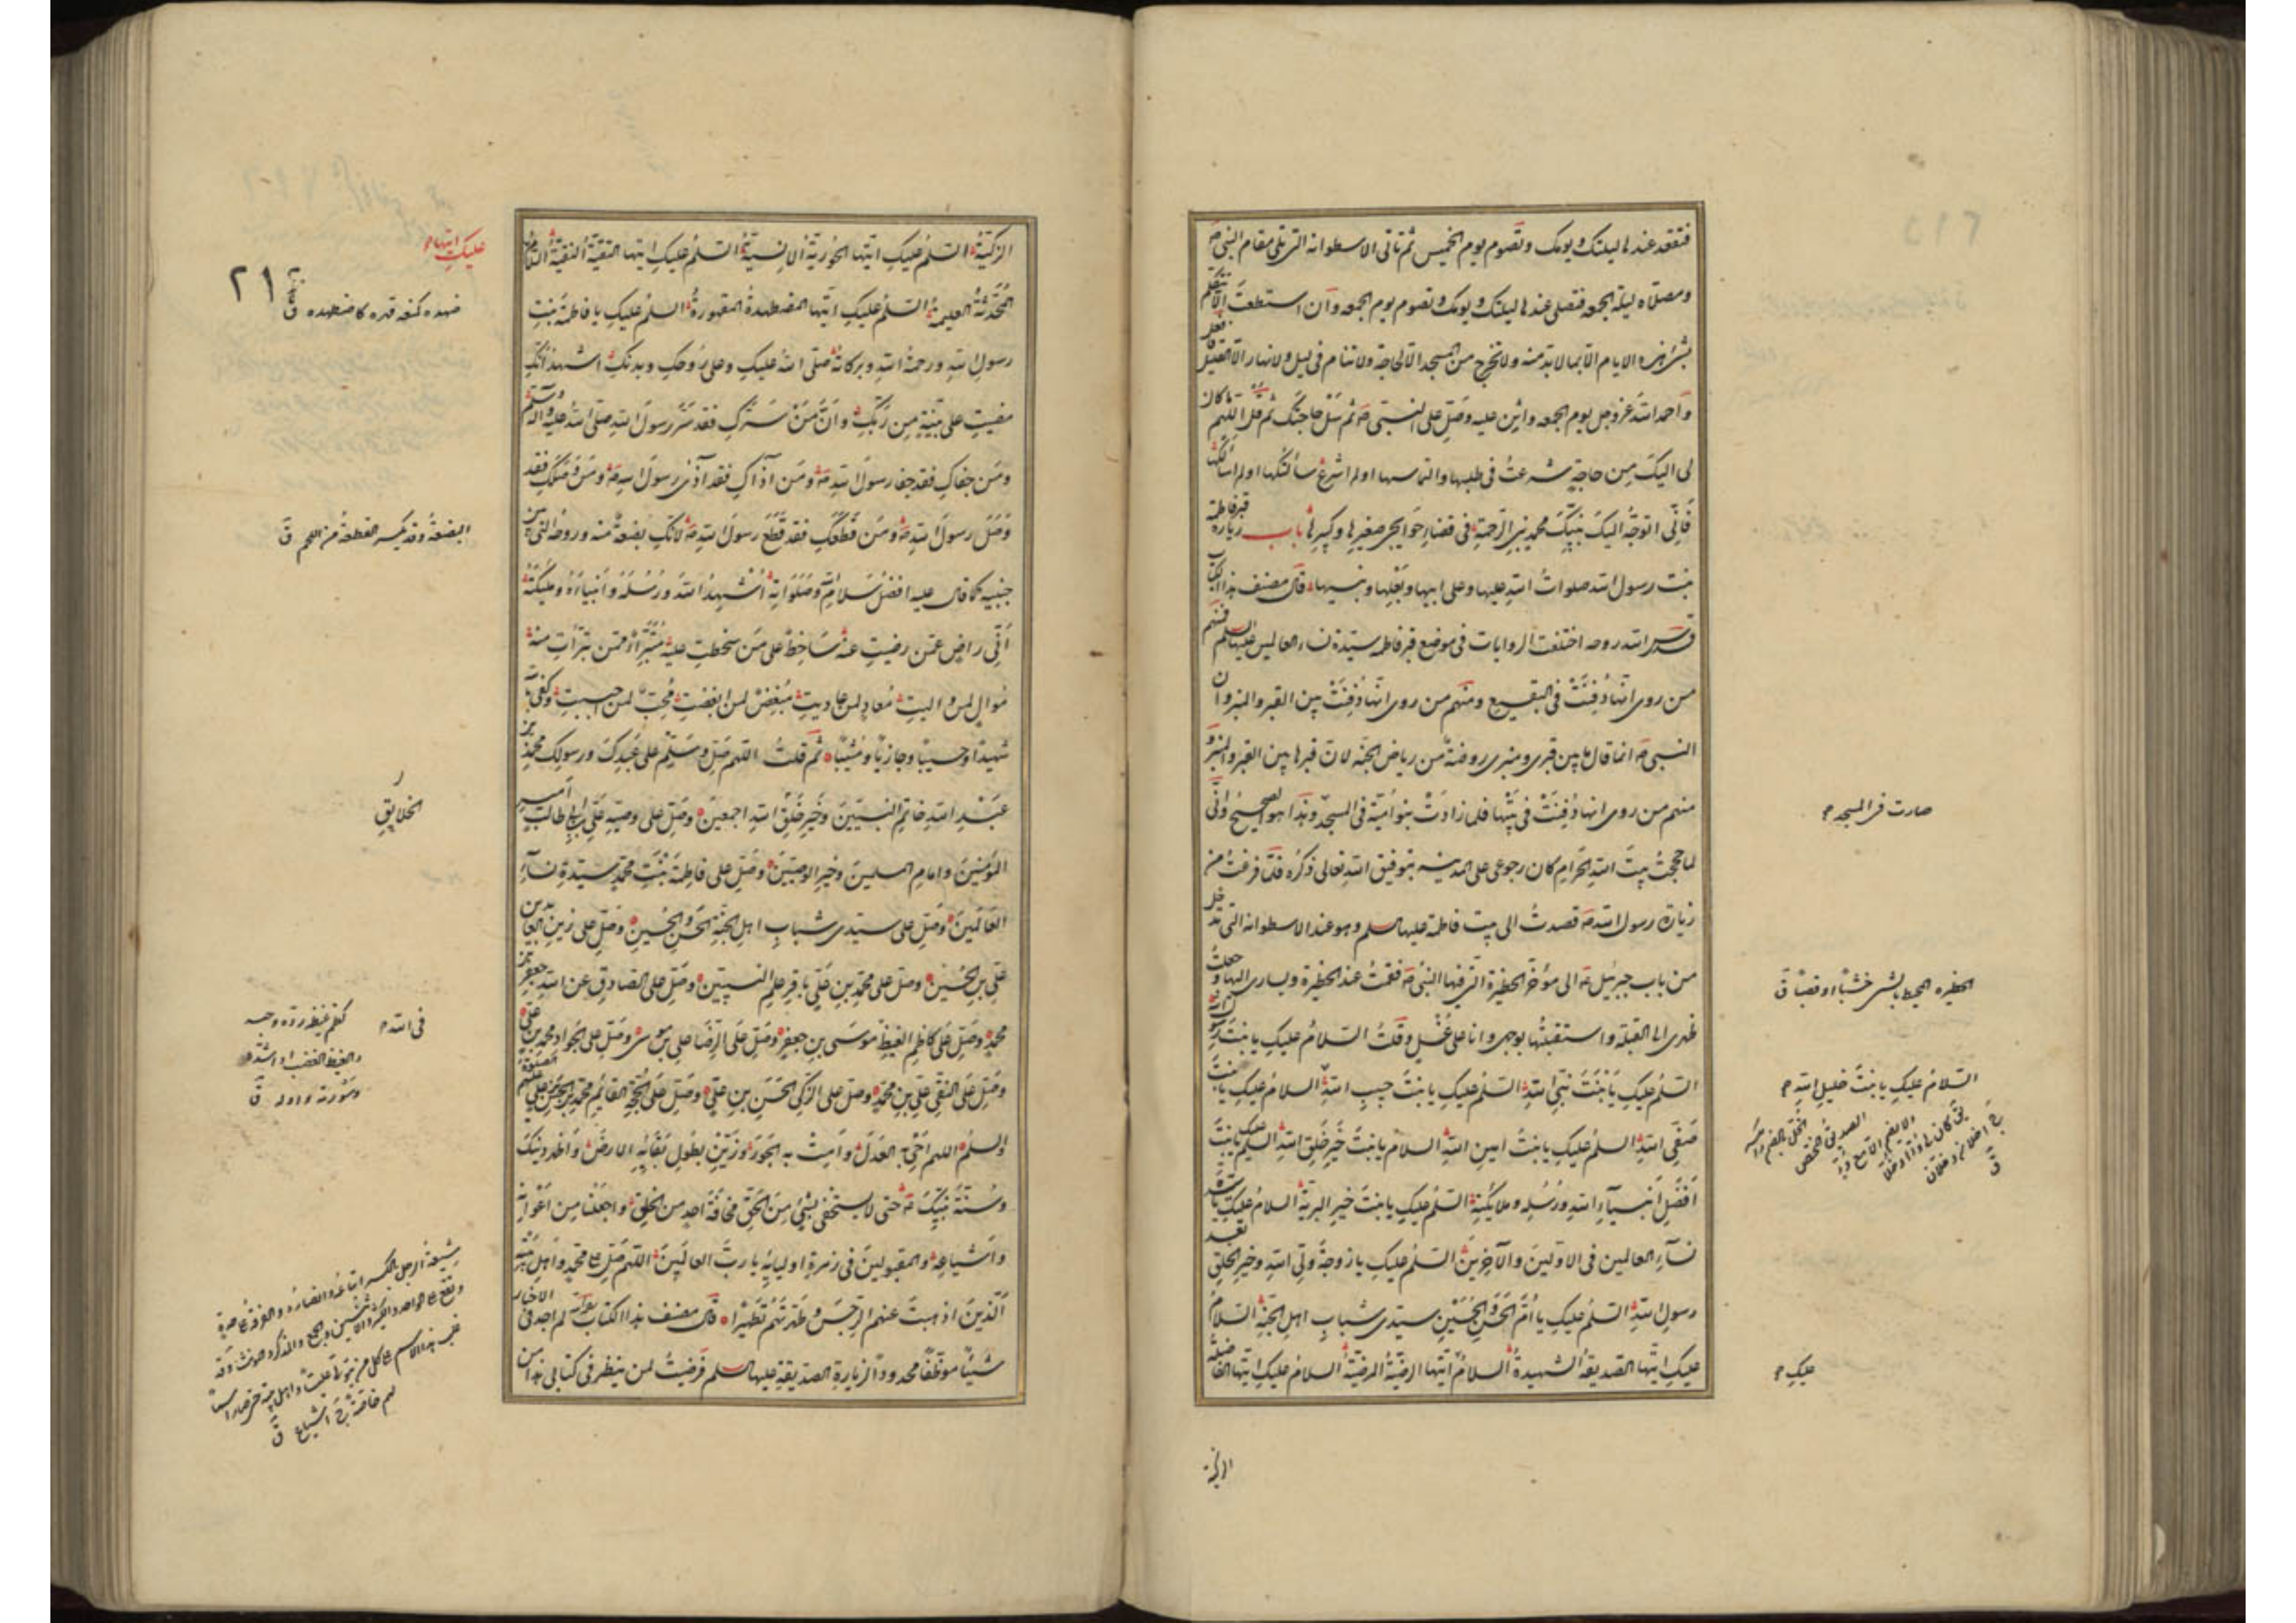 فتقعد عندها ليلتك ويومك وتصوم يوم الخميس ثم تاتى الاسطوانة التى تلى مقام النبى ص
ومصلاه ليلة الجمعه فتصلى عندها ليلتك ويومك وتصوم يوم الجمعه وان استطعت الا تتكلم
بشئ هذه الايام الا بما لا بد منه ولا تخرج من المسجد الا لحاجة ولا تنام فى ليل ولا نهار الا القليل فافعل
واحمد الله عز وجل يوم الجمعه واثن عليه وصل على النبى ص ثم سل حاجتك ثم قل اللهم ما كان
لى اليك من حاجة شرعت فى طلبها والتماسها او لم اشرع سألتكها او لم اسألكها
فانى اتوجه اليك بنبيك محمد نبى الرحمة فى قضاء حوايجى صغيرها وكبيرها باب زيارة قبر فاطمة
بنت رسول الله صلوات الله عليها وعلى ابيها وبعلها وبنيها قال مصنف هذا الكتاب
قدس الله روحه اختلفت الروايات فى موضع قبر فاطمه سيدة نساء العالمين عليها السلم فمنهم
من روى انها دفنت فى البقيع ومنهم من روى انها دفنت بين القبر والمنبر وان
النبى ص انما قال ما بين قبرى ومنبرى روضة من رياض الجنه لان قبرها بين القبر والمنبر و
منهم من روى انها دفنت فى بيتها فلما زادت بنو امية فى المسجد وهذا هو الصحيح وانى
صارت فى المسجد
لما حججت بيت الله الحرام كان رجوعى على المدينه بتوفيق الله تعالى ذكره فلما فرغت من
زيارة رسول الله ص قصدت الى بيت فاطمة عليها السلم وهو عند الاسطوانة التى تدخل
من باب جبرئيل ع الى مؤخر الحظيرة التى فيها النبى ص فقمت عند الحظيرة ويسارى اليها وجعلت
الحظيره المحيط بالشئ خشبا او قصبا ق
ظهرى الى القبلة واستقبلتها بوجهى وانا على غسل وقلت السلام عليك يا بنت رسول الله
السلم عليك يا بنت نبى الله السلم عليك يا بنت حبيب الله السلام عليك يا بنت
السلام عليك يا بنت خليل الله
صفى الله السلم عليك يا بنت امين الله السلام يا بنت خير خلق الله السلم عليك يا بنت
افضل انبياء الله ورسله وملائكته السلم عليك يا بنت خير البرية السلام عليك يا سيدة
نساء العالمين فى الاولين والآخرين السلم عليك يا زوجة ولى الله وخير الخلق بعد
رسول الله السلم عليك يا ام الحسن والحسين سيدى شباب اهل الجنة السلام
عليك ايتها الصديقه الشهيدة السلام ايتها الرضية المرضية السلام عليك ايتها الفاضلة
عليك
الزكية
الزكية السلم عليك ايتها الحورية الانسية السلم عليك ايتها التقية النقية السلام
عليك ايتها
٢١
المحدثة العليمة السلم عليك ايتها المضطهدة المقهورة السلم عليك يا فاطمة بنت
ضهده كمنعه قهره كاضطهده ق
رسول الله ورحمة الله وبركاته صلى الله عليك وعلى روحك وبدنك اشهد انك
مضيت على بينة من ربك وان من سرك فقد سر رسول الله صلى الله عليه وآله وسلم
ومن جفاك فقد جفا رسول الله ص ومن آذاك فقد آذى رسول الله ص ومن وصلك فقد
وصل رسول الله ص ومن قطعك فقد قطع رسول الله ص لانك بضعة منه وروحه التى بين
البضعة وقد يكسر القطعة من اللحم ق
جنبيه كما قال عليه افضل سلام الله وصلواته اشهد الله ورسله وانبياءه وملئكته
انى راض عمن رضيت عنه ساخط على من سخطت عليه متبرأ ممن تبرأت منه
موال لمن واليت معاد لمن عاديت مبغض لمن ابغضت محب لمن احببت وكفى بالله
شهيدا وحسيبا وجازيا ومثيبا ثم قلت اللهم صل وسلم على عبدك ورسولك محمد بن
عبد الله خاتم النبيين وخير خلق الله اجمعين وصل على وصيه على بن ابى طالب امير
الخلايق
المؤمنين وامام المسلمين وخير الوصيين وصل على فاطمة بنت محمد سيدة نساء
العالمين وصل على سيدى شباب اهل الجنة الحسن والحسين وصل على زين العابدين
على بن الحسين وصل على محمد بن على باقر علم النبيين وصل على الصادق عن الله جعفر بن
محمد وصل على كاظم الغيظ موسى بن جعفر وصل على الرضا على بن موسى وصل على الجواد محمد بن على
فى الله
كظم غيظه رده وحبسه
والغيظ الغضب او اشده
وسورته واوله ق
وصل على النقى على بن محمد وصل على الزكى الحسن بن على وصل على الحجة القائم محمد بن الحسن بن على
والسلم اللهم احى به العدل وامت به الجور وزين بطول بقائه الارض واظهر دينك
وسنة نبيك ص حتى لا يستخفى بشئ من الحق مخافة احد من الخلق واجعلنا من اعوانه
واشياعه والمقبولين فى زمرة اوليائه يا رب العالمين اللهم صل على محمد واهل بيته
الذين اذهبت عنهم الرجس وطهرتهم تطهيرا قال مصنف هذا الكتاب لم اجد فى الاخبار
شيئا موظفا محدودا لزيارة الصديقة عليها السلم فرضيت لمن ينظر فى كتابى هذا من
شيعة الرجل بالكسر اتباعه وانصاره والفرقة على حدة
ويقع على الواحد والاثنين والجمع والمذكر والمونث وقد
غلب هذا الاسم على كل من يتولى عليا واهل بيته حتى صار اسما
لهم خاصة ج اشياع ق